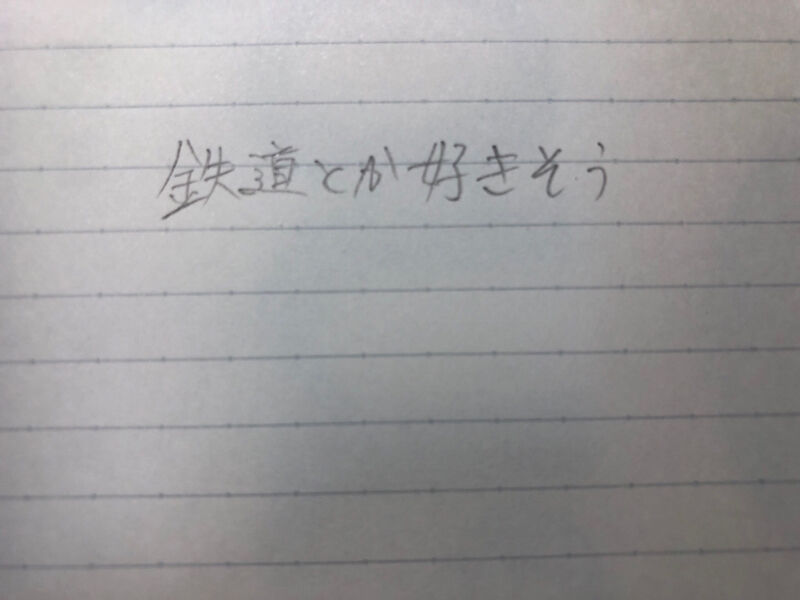 鉄道とか好きそう